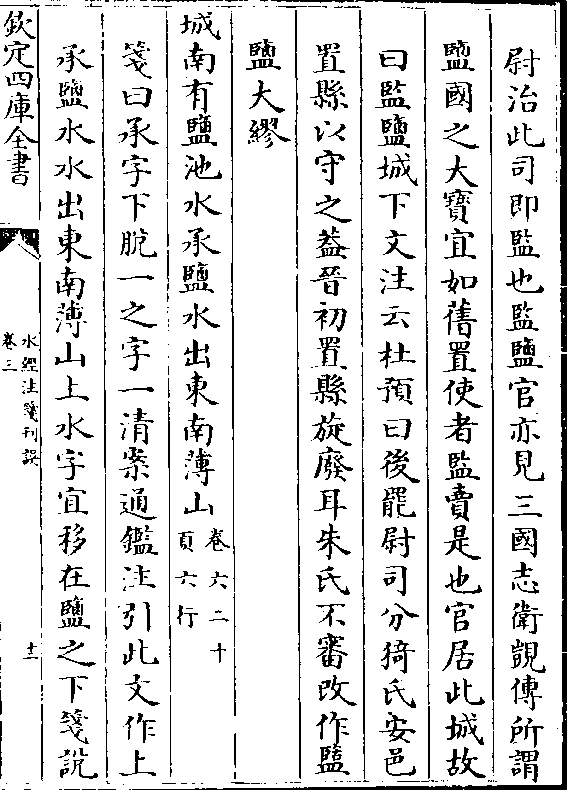 尉治此司即監也監鹽官亦見三國志衛覬傳所謂
鹽國之大寶宜如舊置使者監賣是也官居此城故
曰監鹽城下文注云杜預曰後罷尉司分猗氏安邑
置縣以守之葢晉初置縣旋廢耳朱氏不審改作鹽
鹽大繆
城南有鹽池水承鹽水出東南薄山卷六二十
頁六行
箋曰承字下脫一之字一清案通鑑注引此文作上
承鹽水水出東南薄山上水字宜移在鹽之下箋說
欽定四庫全書
水經注箋刊誤
卷三
十二